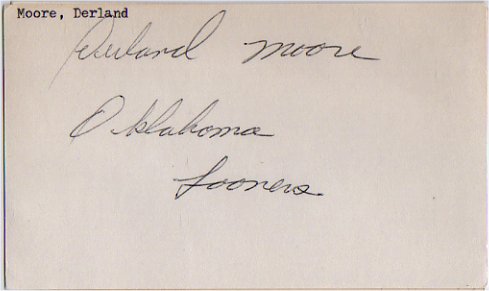 Moore, Derland
Derland Moore
Oklahoma
Sooners